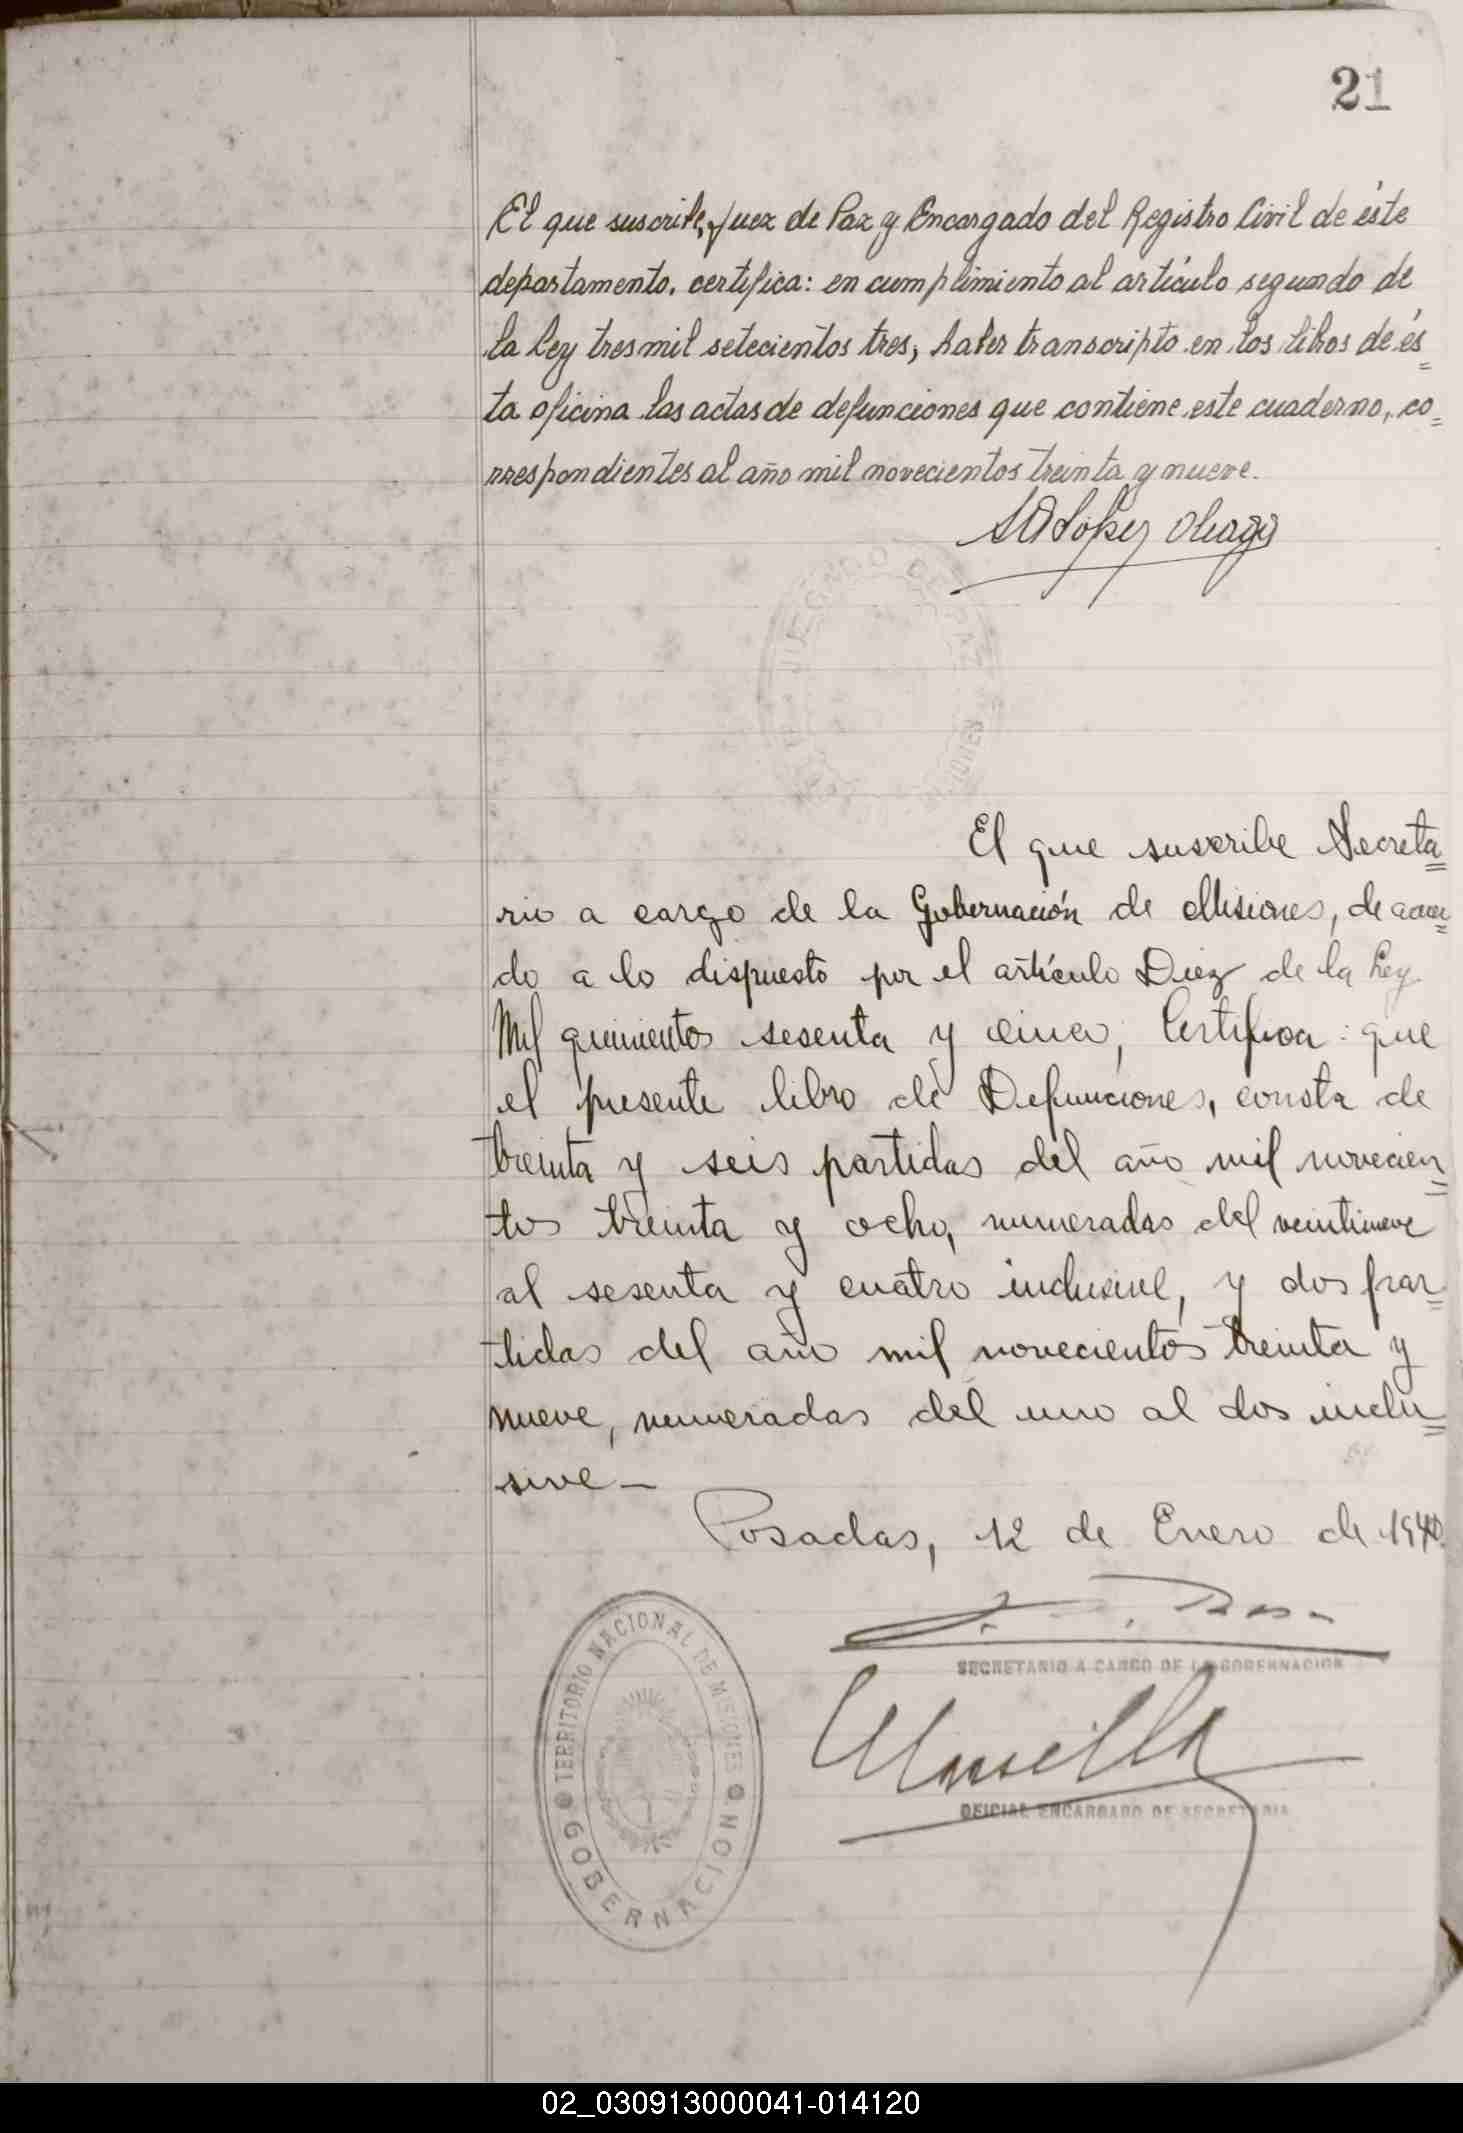 21
El que suscribe, Juez de Paz y Encargado del Registro Civil de éste
departamento, certifica: en cumplimiento al artículo segundo de
la Ley tres mil setecientos tres, haber transcripto en los libros de és=
ta oficina las actas de defunciones que contiene este cuaderno, co=
rrespondientes al año mil novecientos treinta y nueve.
López
JUZGADO DE PAZ
MISIONES
El que suscribe Secreta=
rio a cargo de la Gobernación de Misiones, de acuer=
do a lo dispuesto por el artículo Diez de la Ley
Mil quinientos sesenta y cinco, Certifica: que
el presente libro de Defunciones, consta de
treinta y seis partidas del año mil novecien=
tos treinta y ocho, numeradas del veintinueve
al sesenta y cuatro inclusive, y dos par=
tidas del año mil novecientos treinta y
nueve, numeradas del uno al dos inclu=
sive—
Posadas, 12 de Enero de 1940.
SECRETARIO A CARGO DE LA GOBERNACION
Mansilla
OFICIAL ENCARGADO DE SECRETARIA
TERRITORIO NACIONAL DE MISIONES
GOBERNACION
02_030913000041-014120